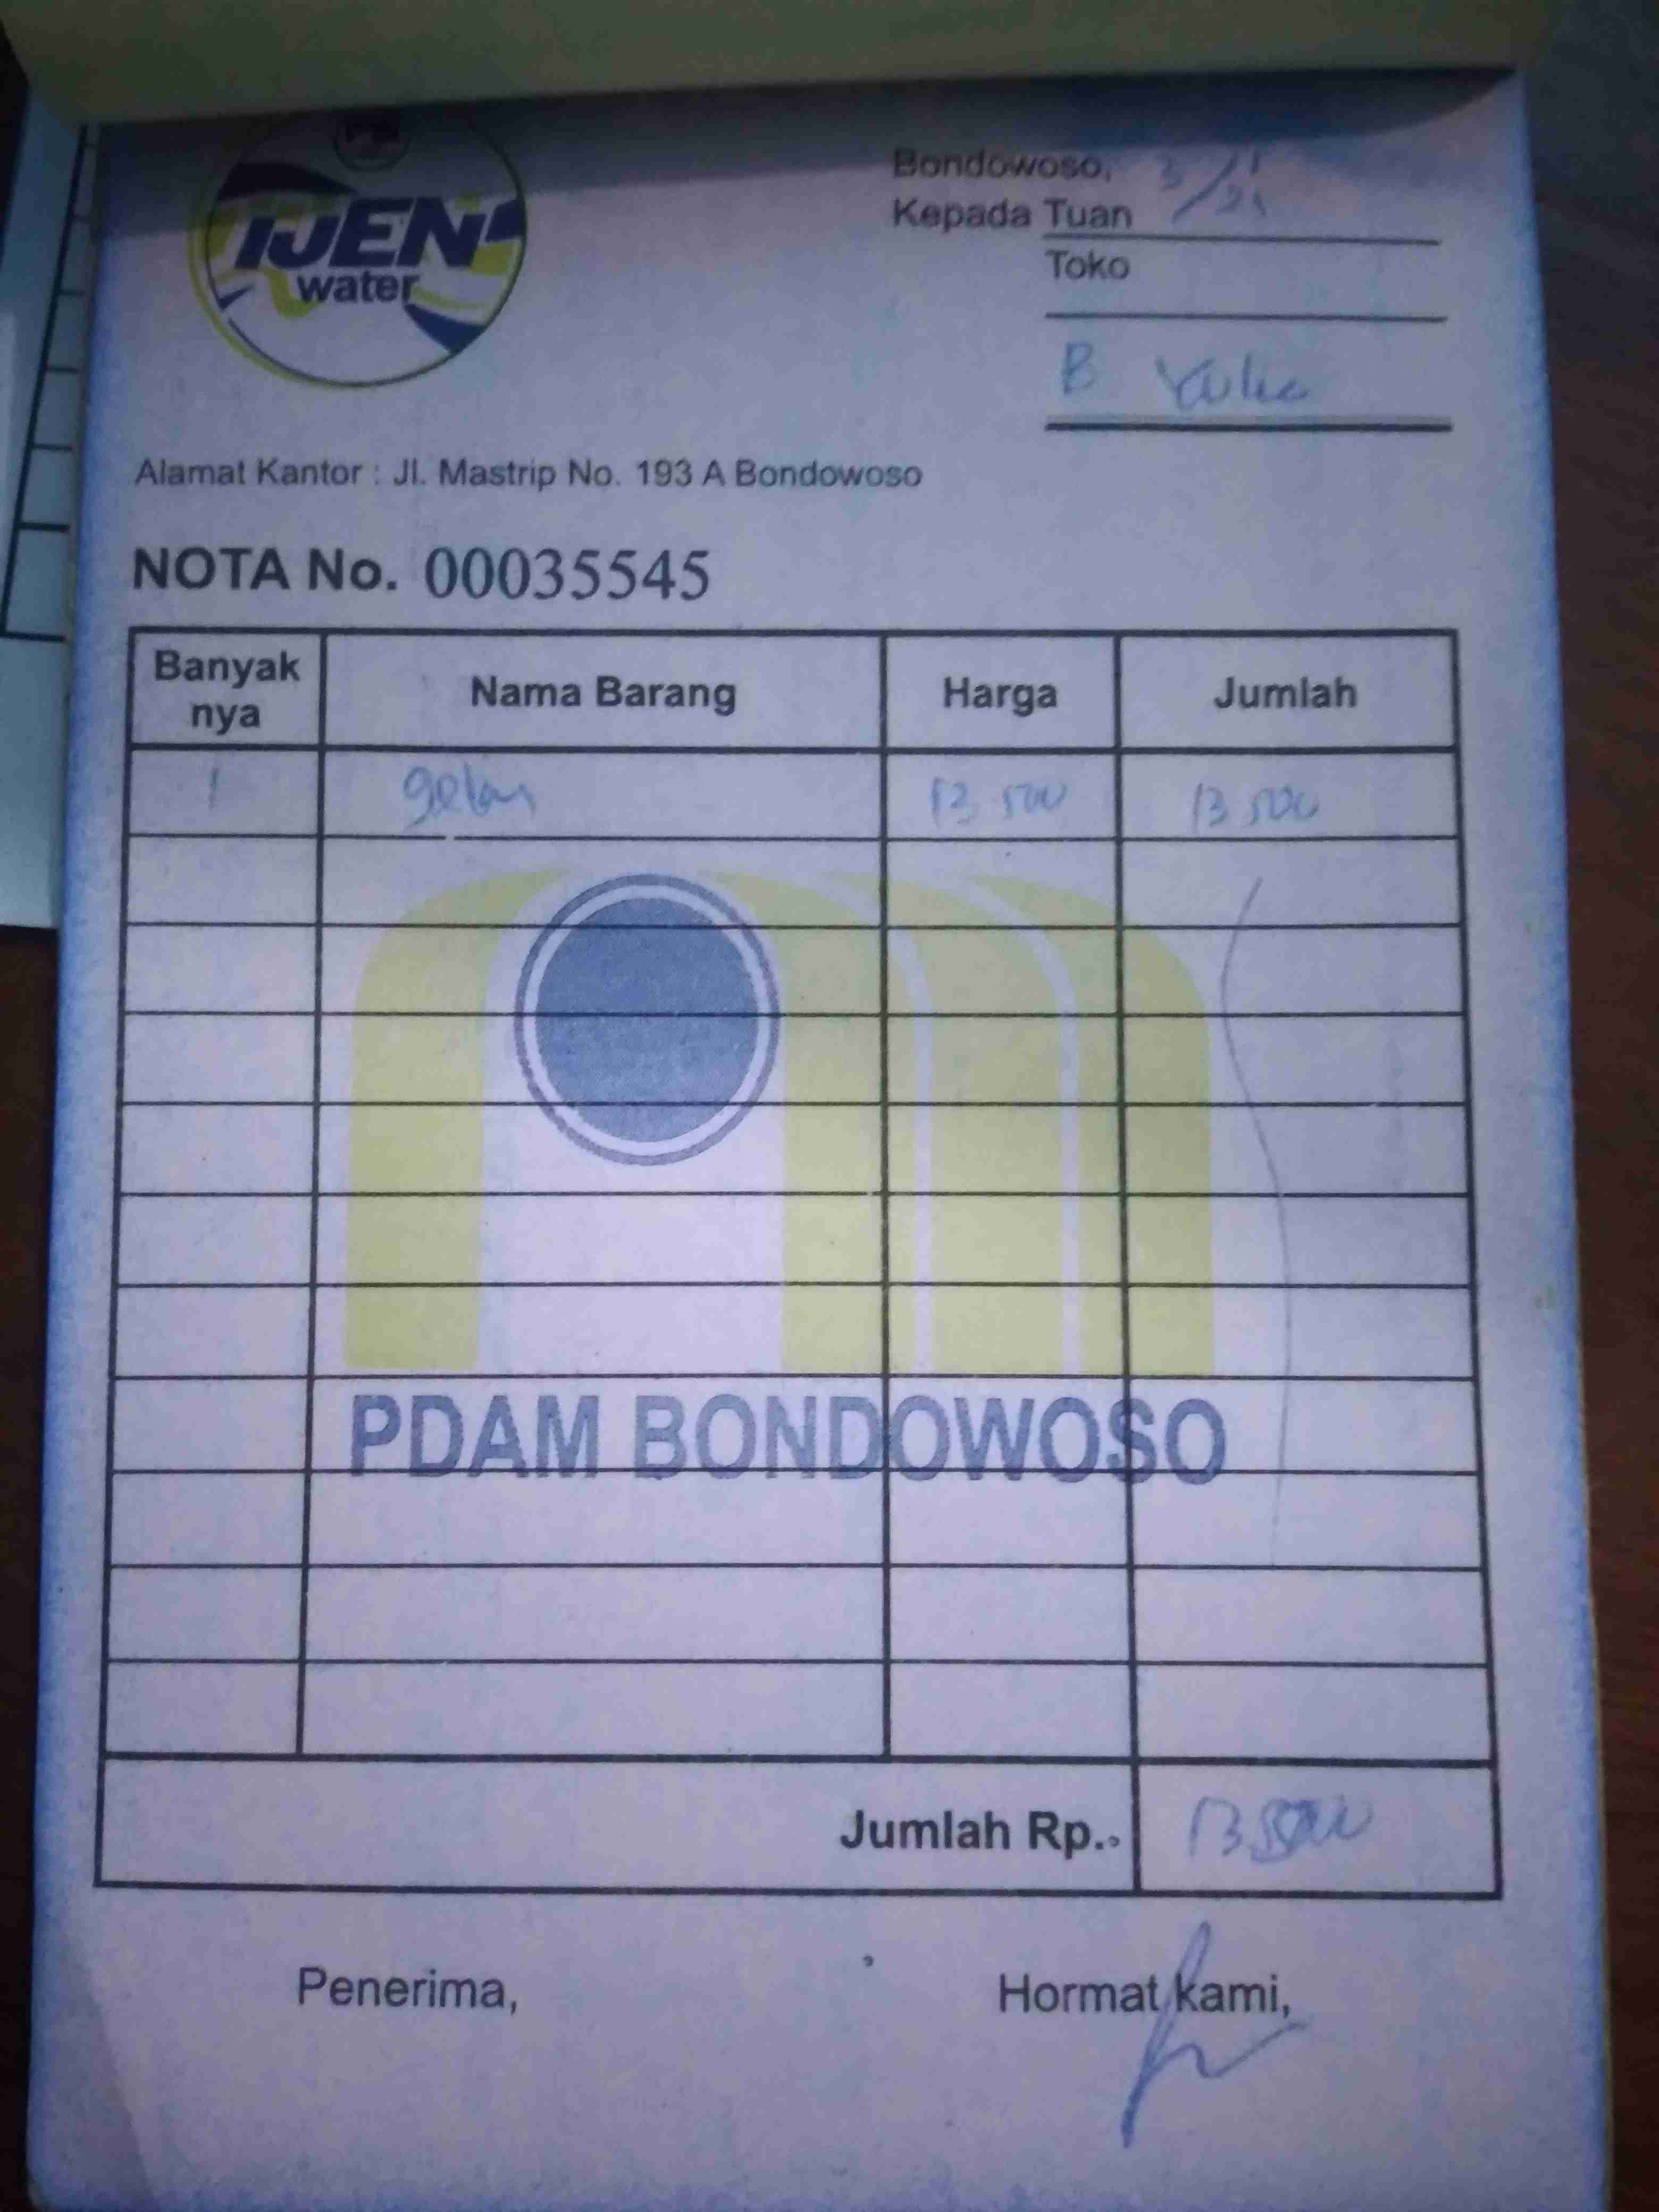 IJEN
water
Bondowoso, 3/1
21
Kepada Tuan
Toko
B Yulie
Alamat Kantor : Jl. Mastrip No. 193 A Bondowoso
NOTA No. 00035545
Banyak nya Nama Barang Harga Jumlah
1 gelas 13 500 13 500
PDAM BONDOWOSO
Jumlah Rp.. 13.500
Penerima, Hormat kami,